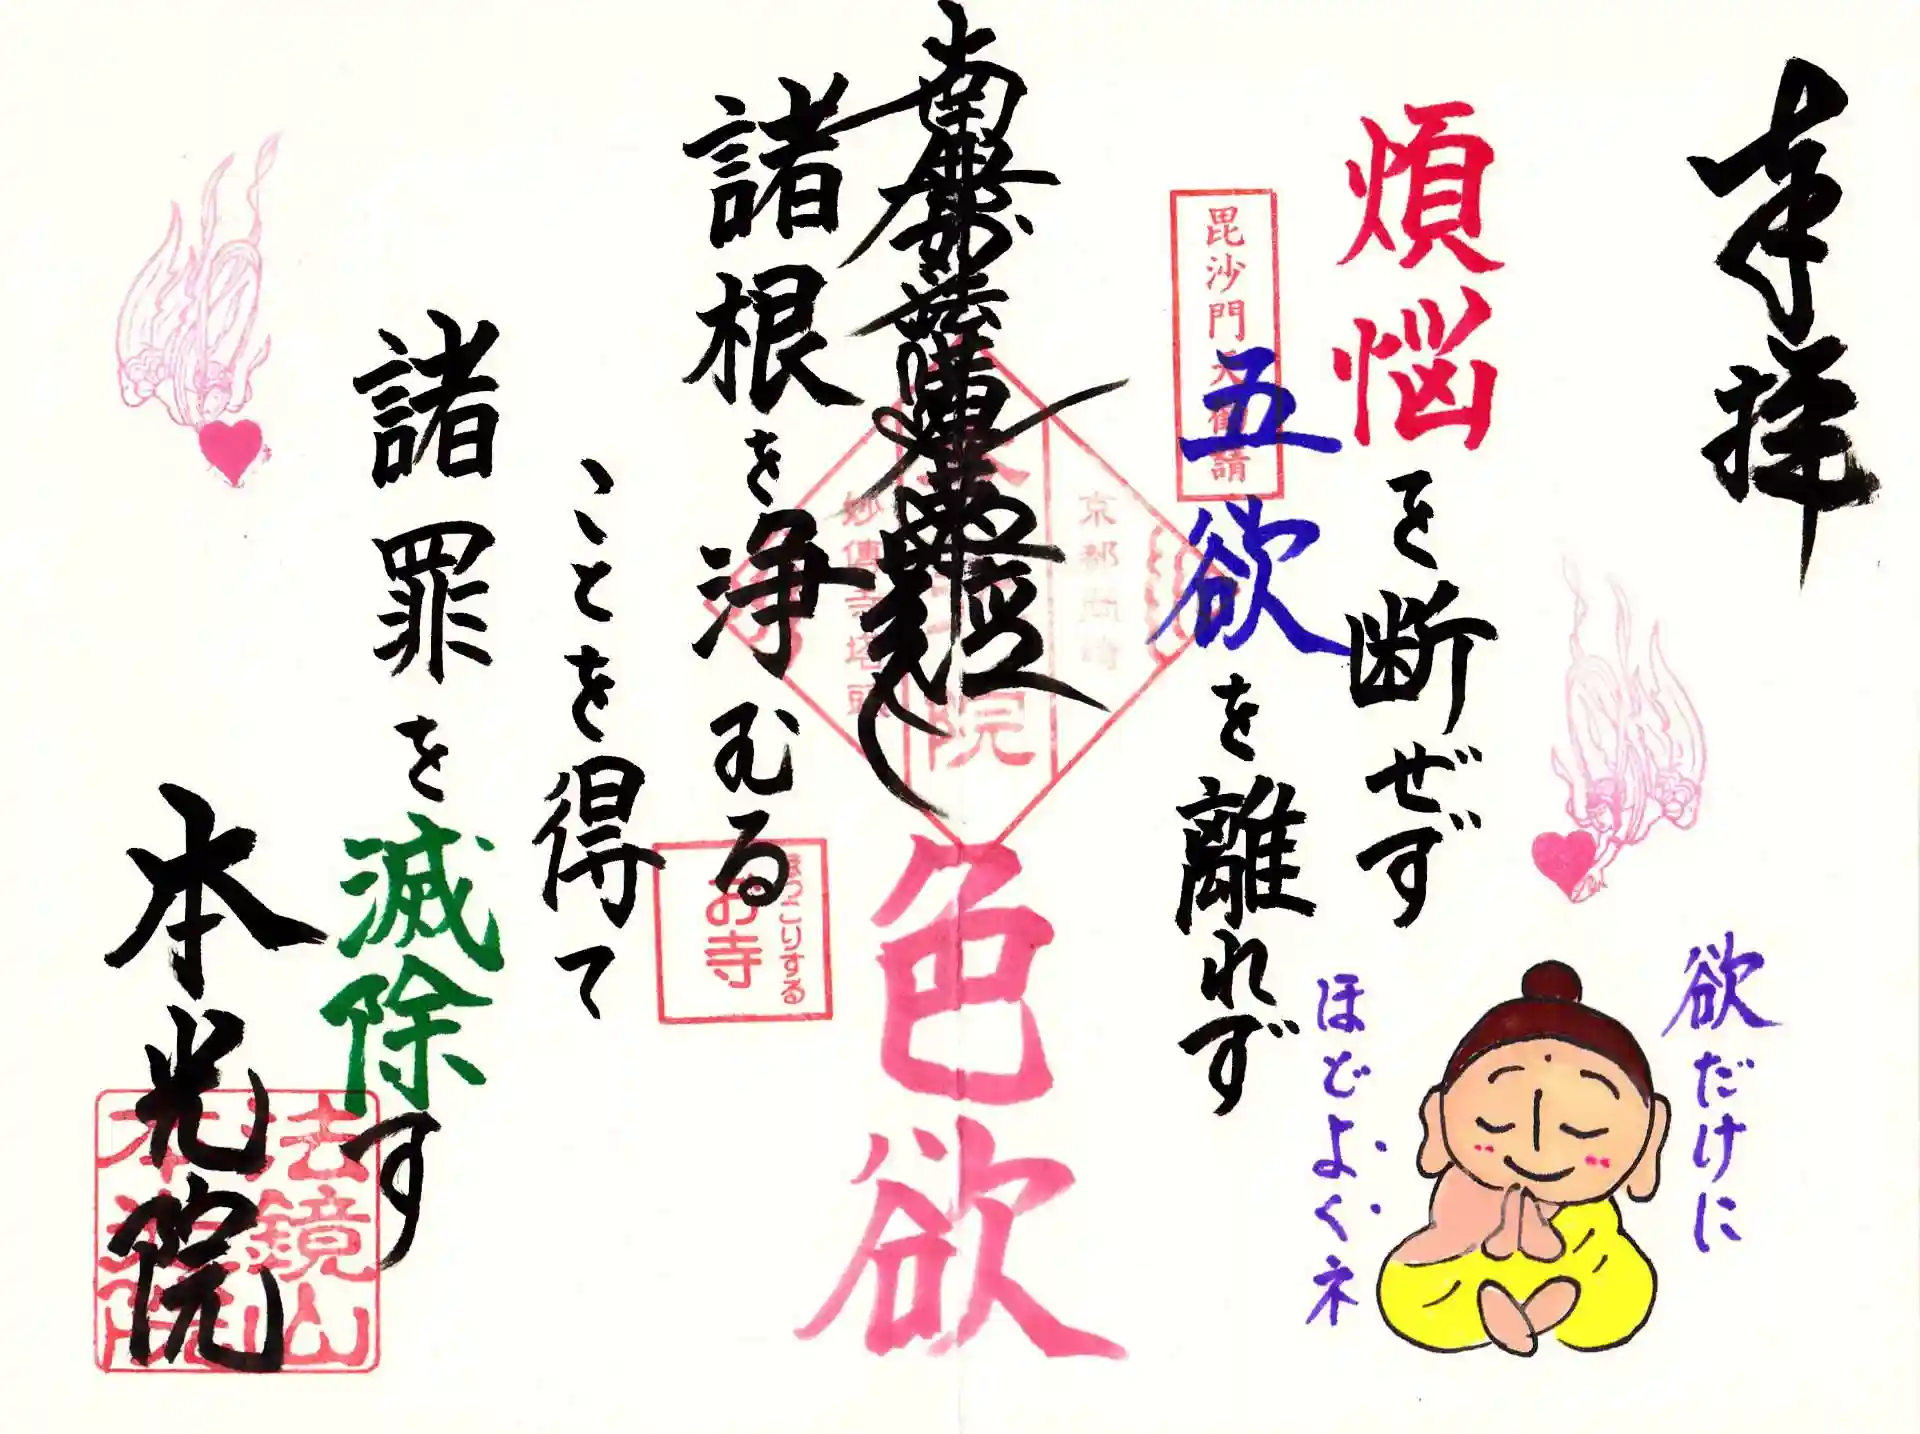 奉拝
煩悩を断ぜず
五欲を離れず
毘沙門天
請
南無妙法蓮華経
色欲
京都岡崎
院
妙傳寺塔頭
諸根を浄むる
ことを得て
諸罪を滅除す
ほっこりする
お寺
本光院
法鏡山
本光院
欲だけに
ほどよくネ